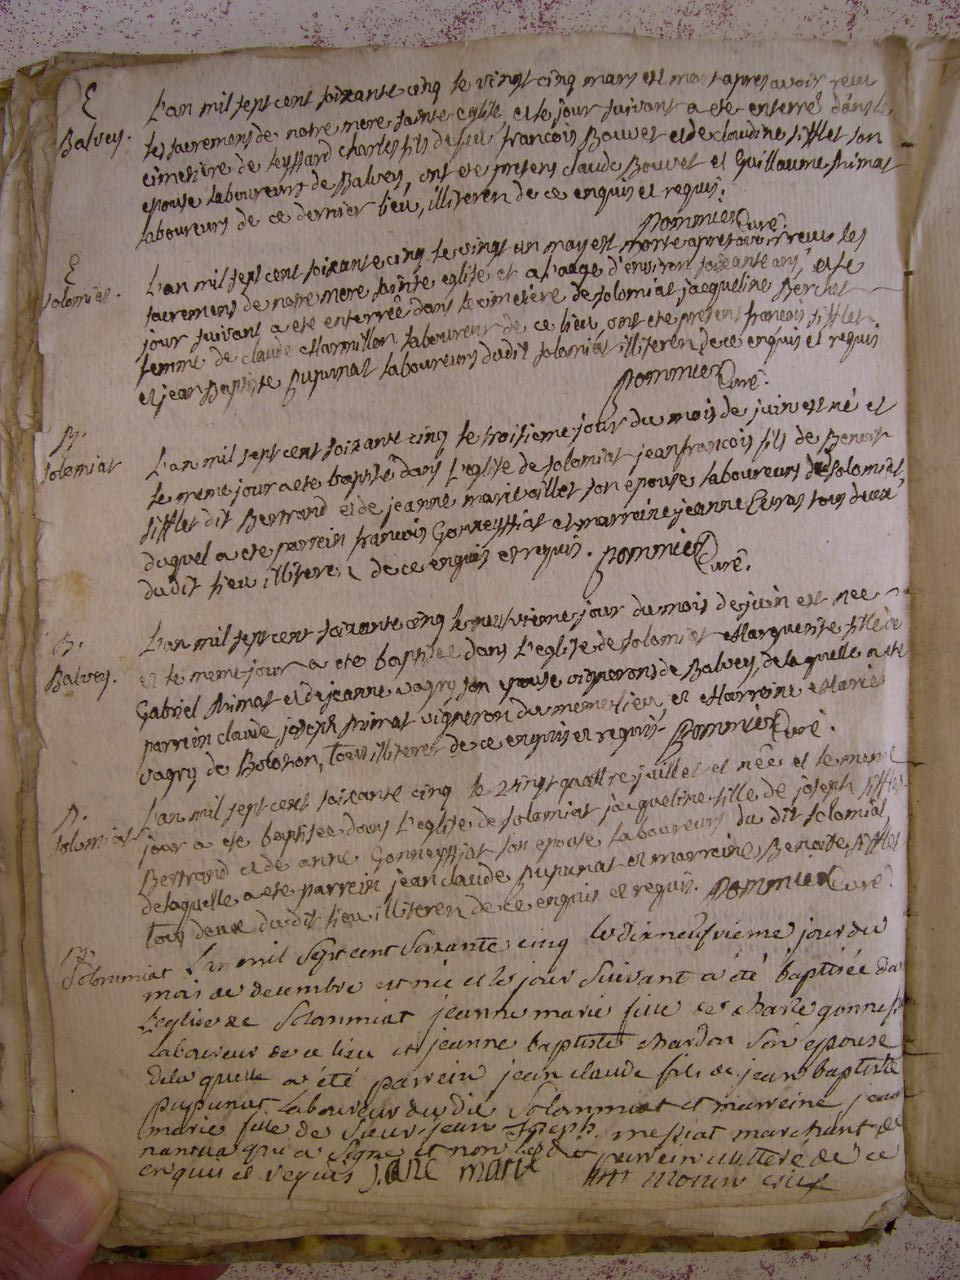 E
Balvey.
L'an mil sept cent soixante cinq le vingt cinq mars est mort apres avoir receu
les sacremens de notre mere sainte eglise et le jour suivant a ete enterré dans le
cimetiere de leyssard charles fils de feu françois Bouvet et de claudine sifflet son
epouse laboureurs de Balvey, ont ete presens claude Bouvet et Guillaume primat
laboureurs de ce dernier lieu, illiteren de ce enquis et requis.
pommier Curé.
E
solomiat.
L'an mil sept cent soixante cinq le vingt un may est morte apres avoir receu les
sacremens de notre mere sainte eglise et a l'aage d'environ soixante ans, et le
jour suivant a ete enterrée dans le cimetiere de solomiat jacqueline Berchet
femme de claude Marmillon laboureur de ce lieu, ont ete presens francois sifflet
et jean Baptiste pupunat laboureurs dudit solomiat illiteren de ce enquis et requis
pommier Curé.
B.
solomiat
L'an mil sept cent soixante cinq le troisieme jour du mois de juin est né et
le meme jour a ete baptisé dans L'eglise de solomiat jean francois fils de Benoit
sifflet dit Bertrand et de jeanne marie son epouse laboureurs de solomiat
duquel a ete parrein francois Gonneyssiat et marreine jeanne tous deux
du dit lieu illiteren de ce enquis et requis. pommier Curé.
B.
Balvey.
L'an mil sept cent soixante cinq le jour du mois de juin est née
et le meme jour a ete baptisée dans L'eglise de solomiat Marguerite fille de
Gabriel primat et de jeanne vagry son epouse vignerons de Balvey, de laquelle a ete
parrein claude joseph primat vigneron du meme lieu, et Marreine Marie
vagry de Bolozon, tous illiteren de ce enquis et requis. pommier Curé.
B.
solomiat
L'an mil sept cent soixante cinq le vingt quattre juillet est née et le meme
jour a ete baptisée dans L'eglise de solomiat jacqueline fille de joseph sifflet
Bertrand et de anne Gonneyssiat son epouse laboureurs du dit solomiat,
de laquelle a ete parrein jean claude pupunat et marreine Benoite sifflet
tous deux du dit lieu illiteren de ce enquis et requis. pommier Curé.
B.
Solommiat L'an mil Sept cent Soixante cinq le dixneufvieme jour du
mois de decembre est née et le jour Suivant a été baptisée da
L'eglise de Solommiat jeanne marie fille de charle
Laboureur de ce lieu et jeanne baptiste chardon Son epouse
de la quelle a été parrein jean claude fils de jean baptiste
pupunat Laboureur du dit Solommiat et marreine jean
marie fille de Sieur jean Joseph messiat marchant de
nantua qui a Signé et non le dit parrein illiteré de ce
enquis et requis Jane marie